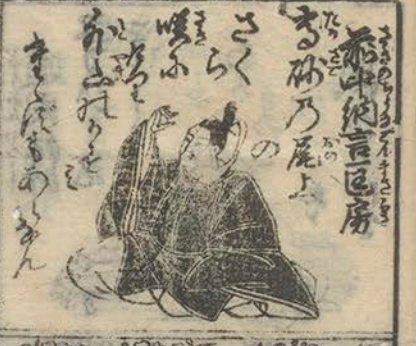 前中納言匡房
高砂乃尾上
の
さくら
咲に
けり
外山のかすミ
たゝずもあらなん